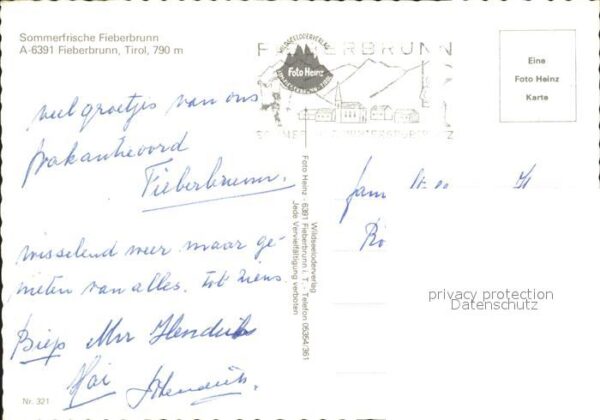 Sommerfrische Fieberbrunn
A-6391 Fieberbrunn, Tirol, 790 m
FIEBERBRUNN
WILDSEELODERVERLAG
Foto Heinz
Eine
Foto Heinz
Karte
veel groetjes van ons
Fieberbrunn.
wisselend weer maar ge-
nieten van alles. tot ziens
Hendriks
Hendriks.
Wildseeloderverlag
Foto Heinz - 6391 Fieberbrunn i. T. - Telefon 05354/361
Jede Vervielfältigung verboten
fam
privacy protection
Datenschutz
Nr. 321